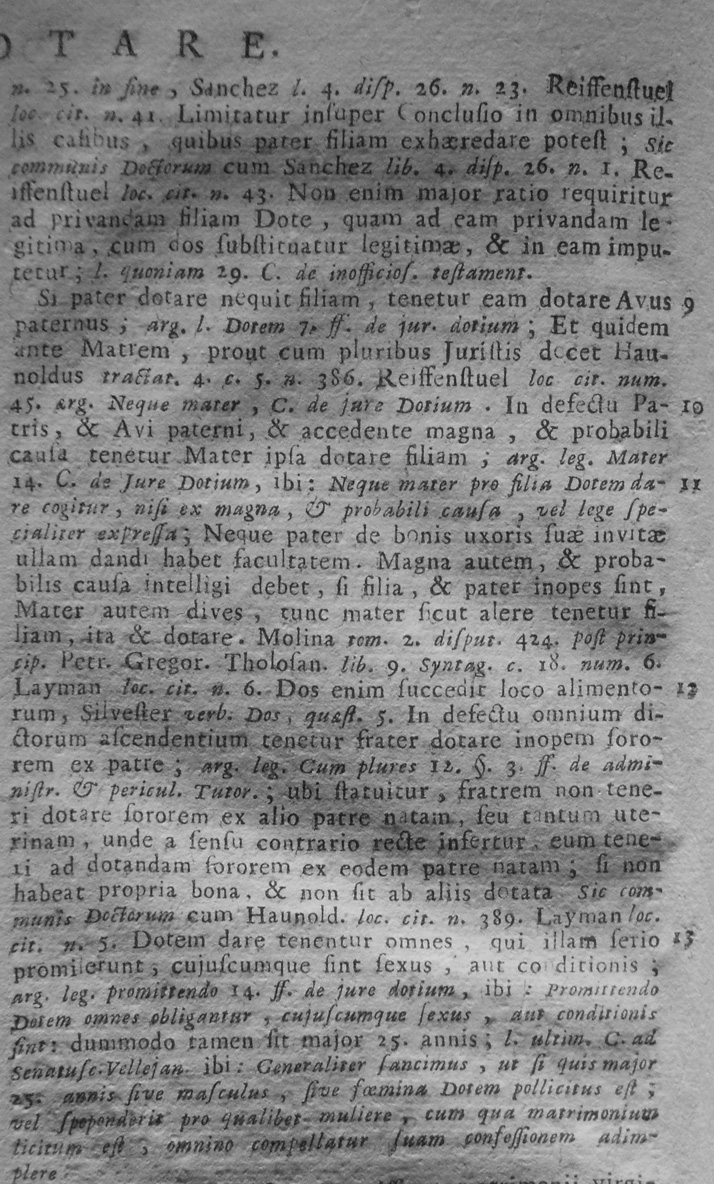 OTARE.
n. 25. in fine, Sanchez l. 4. diſp. 26. n. 23. Reiffenſtuel
loc. cit. n. 41. Limitatur inſuper Concluſio in omnibus il-
lis caſibus, quibus pater filiam exhæredare poteſt; Sic
communis Doctorum cum Sanchez lib. 4. diſp. 26. n. 1. Re-
iffenſtuel loc. cit. n. 43. Non enim major ratio requiritur
ad privandam filiam Dote, quam ad eam privandam le-
gitima, cum dos ſubſtituatur legitimæ, & in eam impu-
tetur; l. quoniam 29. C. de inofficioſ. teſtament.
Si pater dotare nequit filiam, tenetur eam dotare Avus 9
paternus; arg. l. Dotem 7. ff. de jur. dotium; Et quidem
ante Matrem, prout cum pluribus Juriſtis docet Hau-
noldus tractat. 4. c. 5. n. 386. Reiffenſtuel loc cit. num.
45. arg. Neque mater, C. de jure Dotium. In defectu Pa- 10
tris, & Avi paterni, & accedente magna, & probabili
cauſa tenetur Mater ipſa dotare filiam; arg. leg. Mater
14. C. de Jure Dotium, ibi: Neque mater pro filia Dotem da- 11
re cogitur, niſi ex magna, & probabili cauſa, vel lege ſpe-
cialiter expreſſa; Neque pater de bonis uxoris ſuæ invitæ
ullam dandi habet facultatem. Magna autem, & proba-
bilis cauſa intelligi debet, ſi filia, & pater inopes ſint,
Mater autem dives, tunc mater ſicut alere tenetur fi-
liam, ita & dotare. Molina tom. 2. diſput. 424. poſt prin-
cip. Petr. Gregor. Tholoſan. lib. 9. Syntag. c. 18. num. 6.
Layman loc. cit. n. 6. Dos enim ſuccedit loco alimento- 12
rum, Silveſter verb. Dos, quæſt. 5. In defectu omnium di-
ctorum aſcendentium tenetur frater dotare inopem ſoro-
rem ex patre; arg. leg. Cum plures 12. §. 3. ff. de admi-
niſtr. & pericul. Tutor.; ubi ſtatuitur, fratrem non tene-
ri dotare ſororem ex alio patre natam, ſeu tantum ute-
rinam, unde a ſenſu contrario recte infertur, eum tene-
ri ad dotandam ſororem ex eodem patre natam; ſi non
habeat propria bona, & non ſit ab aliis dotata Sic com-
munis Doctorum cum Haunold. loc. cit. n. 389. Layman loc.
cit. n. 5. Dotem dare tenentur omnes, qui illam ſerio 13
promiſerunt, cujuſcumque ſint ſexus, aut co ditionis;
arg. leg. promittendo 14. ff. de jure dotium, ibi: Promittendo
Dotem omnes obligantur, cujuſcumque ſexus, aut conditionis
ſint: dummodo tamen ſit major 25. annis; l. ultim. C. ad
Senatuſc. Vellejan. ibi: Generaliter ſancimus, ut ſi quis major
25. annis ſive maſculus, ſive fœmina Dotem pollicitus eſt;
vel ſpoponderit pro qualibet muliere, cum qua matrimonium
licitum eſt, omnino compellatur ſuam confeſſionem adim-
plere.